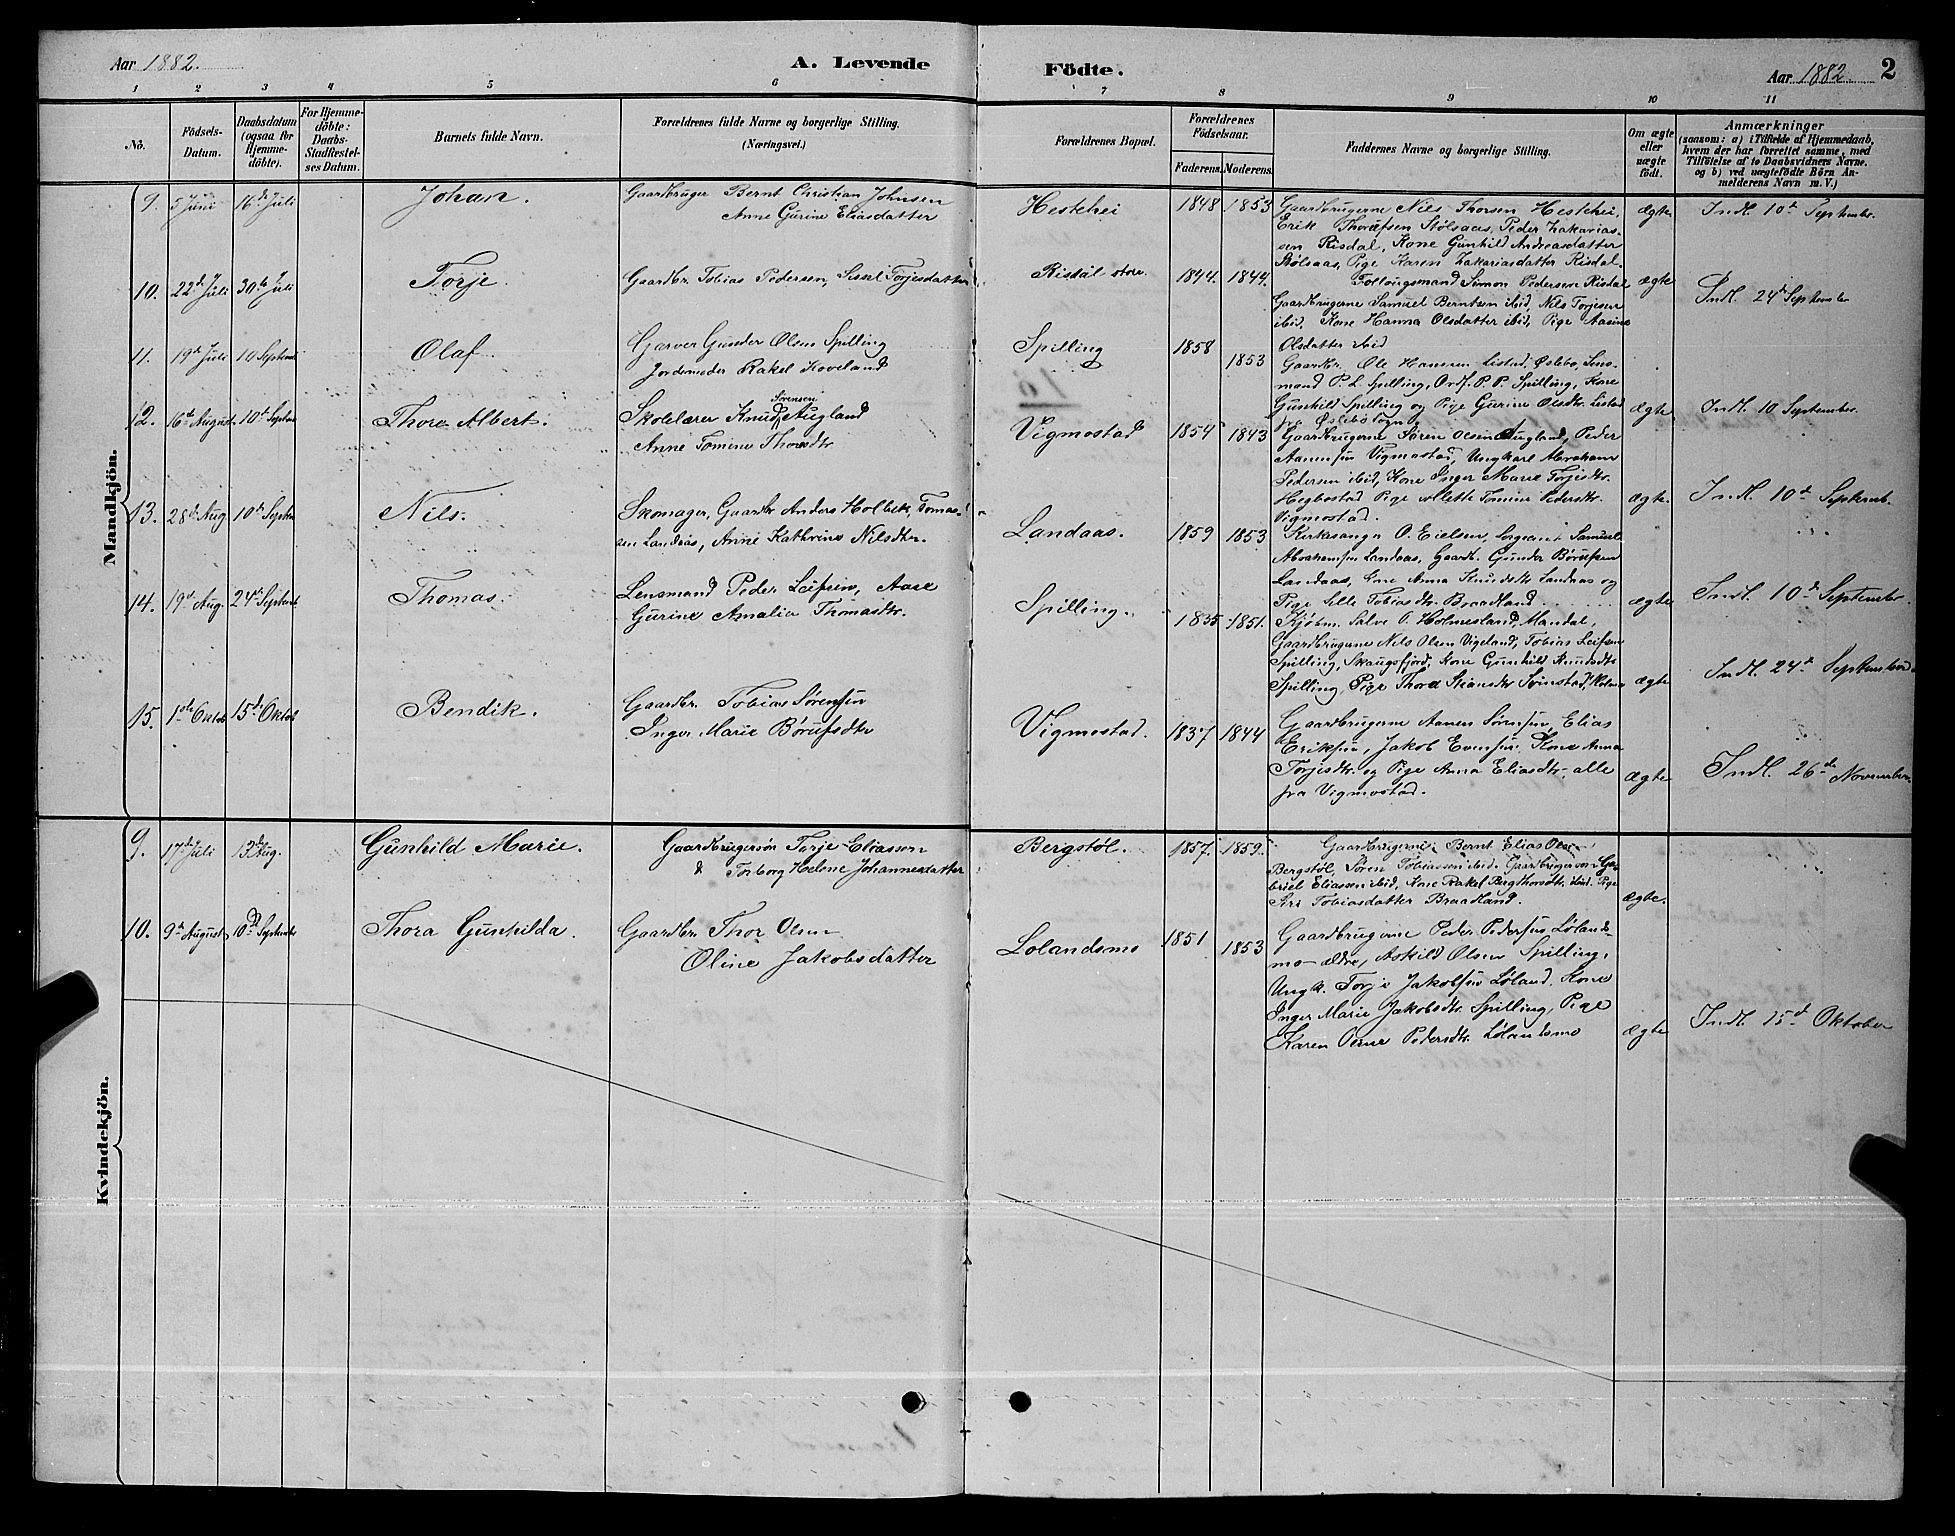 Aar 1882.
A. Levende Födte.
Aar 1882
2
1 2 3 4 5 6 7 8 9 10 11
Nö.
Födsels-Datum.
Daabsdatum (ogsaa for Hjemmedöbte).
For Hjemmedöbte: Daabs-Stadfæstelses Datum.
Barnets fulde Navn.
Forældrenes fulde Navne og borgerlige Stilling.
(Næringsvei.)
Forældrenes Bopæl.
Forældrenes Födselsaar.
Faderens. Moderens.
Faddernes Navne og borgerlige Stilling.
Om ægte eller uægte födt.
Anmærkninger
(saasom: a) i Tilfælde af Hjemmedaab, hvem der har forrettet samme, med Tilföielse af to Daabsvidners Navne. og b) ved uægtefödte Börn Anmelderens Navn m. V.)
Mandkjön.
9. 5 Juni 16de Juli Johan. Gaardbruger Bernt Christian Johnsen
Anne Gurine Eliasdatter
Hestehei 1848 1853
Gaardbrugerne Nils Thorsen Hestehei,
Erik Thorufsen Stølsaas, Peder Zakarias-
sen Risdal, Kone Gunhild Andreasdatter
Stølsaas, Pige Karen Zakariasdatter Risdal.
ægte Indl. 10de September.
10. 22de Juli 30te Juli Torje. Gaardbr. Tobias Pedersen, Sissel Torjesdatter
Risdal store. 1844. 1844.
Follougsmand Simon Pedersen Risdal
Gaardbrugerne Samuel Berntsen ibid, Nils Torjesen
ibid, Kone Hanna Olsdatter ibid, Pige Aasine
Olsdatter ibid
ægte Indl. 24de September
11. 19de Juli 10 Septemb Olaf. Garver Gunder Olsen Spilling
Jordemoder Rakel Hoveland
Spilling 1858 1853
Gaardbr. Ole Hanssen Listad, Øslebø, Lens-
mand P. L. Spilling, Ordf. P. P. Spilling, Kone
Gunhild Spilling og Pige Gurine Olsdtr. Listad
fra Øslebø Sogn
ægte Indl. 10 September.
12. 16de August 10de Septbr Thore Albert. Skolelærer Knud Sørensen Augland
Anne Tomine Thoresdtr
Vigmostad 1854 1843
Gaardbrugerne Søren Olsen Augland, Peder
Aanensen Vigmostad, Ungkarl Abraham
Pedersen ibid, Kone Inger Marie Torjesdtr.
Hegbostad Pige Collette Tomine Pedersdtr.
Vigmostad.
ægte. Indl. 10de Septemb.
13. 28de Aug 10de Septbr Nils. Skomager, Gaardbr Anders Holbek Tomas-
sen Landaas, Anne Kathrine Nilsdtr.
Landaas. 1859 1853
Kirkesanger O. Eielsen, Sergeant Samuel
Abrahamsen Landaas, Gaardb. Gunder Børufsen
Landaas, Kone Anna Knudsdtr Landaas og
Pige Lille Tobiasdtr. Braadland
ægte Indl. 10de September.
14. 19de Aug. 24de Septemb Thomas. Lensmand Peder Leifsen, Aase
Gurine Amalia Thomasdtr.
Spilling. 1835 1851.
Kjøbm. Salve O. Holmesland, Mandal,
Gaardbrugerne Nils Olsen Vigeland, Tobias Leifsen
Spilling, Skaugsfjord, Kone Gunhild Knudsdtr
Spilling, Pige Thora Svinstad, Holme
ægte Indl. 24de September
15. 1ste Oktob 15de Oktob Bendik. Gaardbr. Tobias Sørensen
Inger Marie Børufsdtr
Vigmostad. 1837 1844
Gaardbrugerne Aanen Sørensen, Elias
Eriksen, Jakob Evensen, Kone Anna
Torjesdtr. og Pige Anna Eliasdtr. alle
fra Vigmostad.
ægte Indl. 26de November.
Kvindekjön.
9. 17de Juli 13de Aug. Gunhild Marie. Gaardbrugersøn Torje Eliassen
& Torborg Helene Johannesdatter
Bergstøl. 1857. 1859.
Gaardbrugerne Bernt Elias Olsen
Bergstøl, Søren Tobiassen ibid. Gaardbrugersøn Ga-
briel Eliassen ibid, Kone Rakel Bergthorsdtr. ibid. Pige
Siri Tobiasdatter Braadland.
ægte.
10. 9de August 10de Septembr Thora Gunhilda. Gaardbr. Thor Olsen
Oline Jakobsdatter
Lolandsmo 1851 1853
Gaardbrugerne Peder Pedersen Løland-
mo ældre, Askild Olsen Spilling,
Ungk. Torje Jakobsen Løland, Kone
Inger Marie Jakobsdtr. Spilling, Pige
Karen Oline Pedersdtr. Lølandsmo
ægte Indl. 15de Oktober